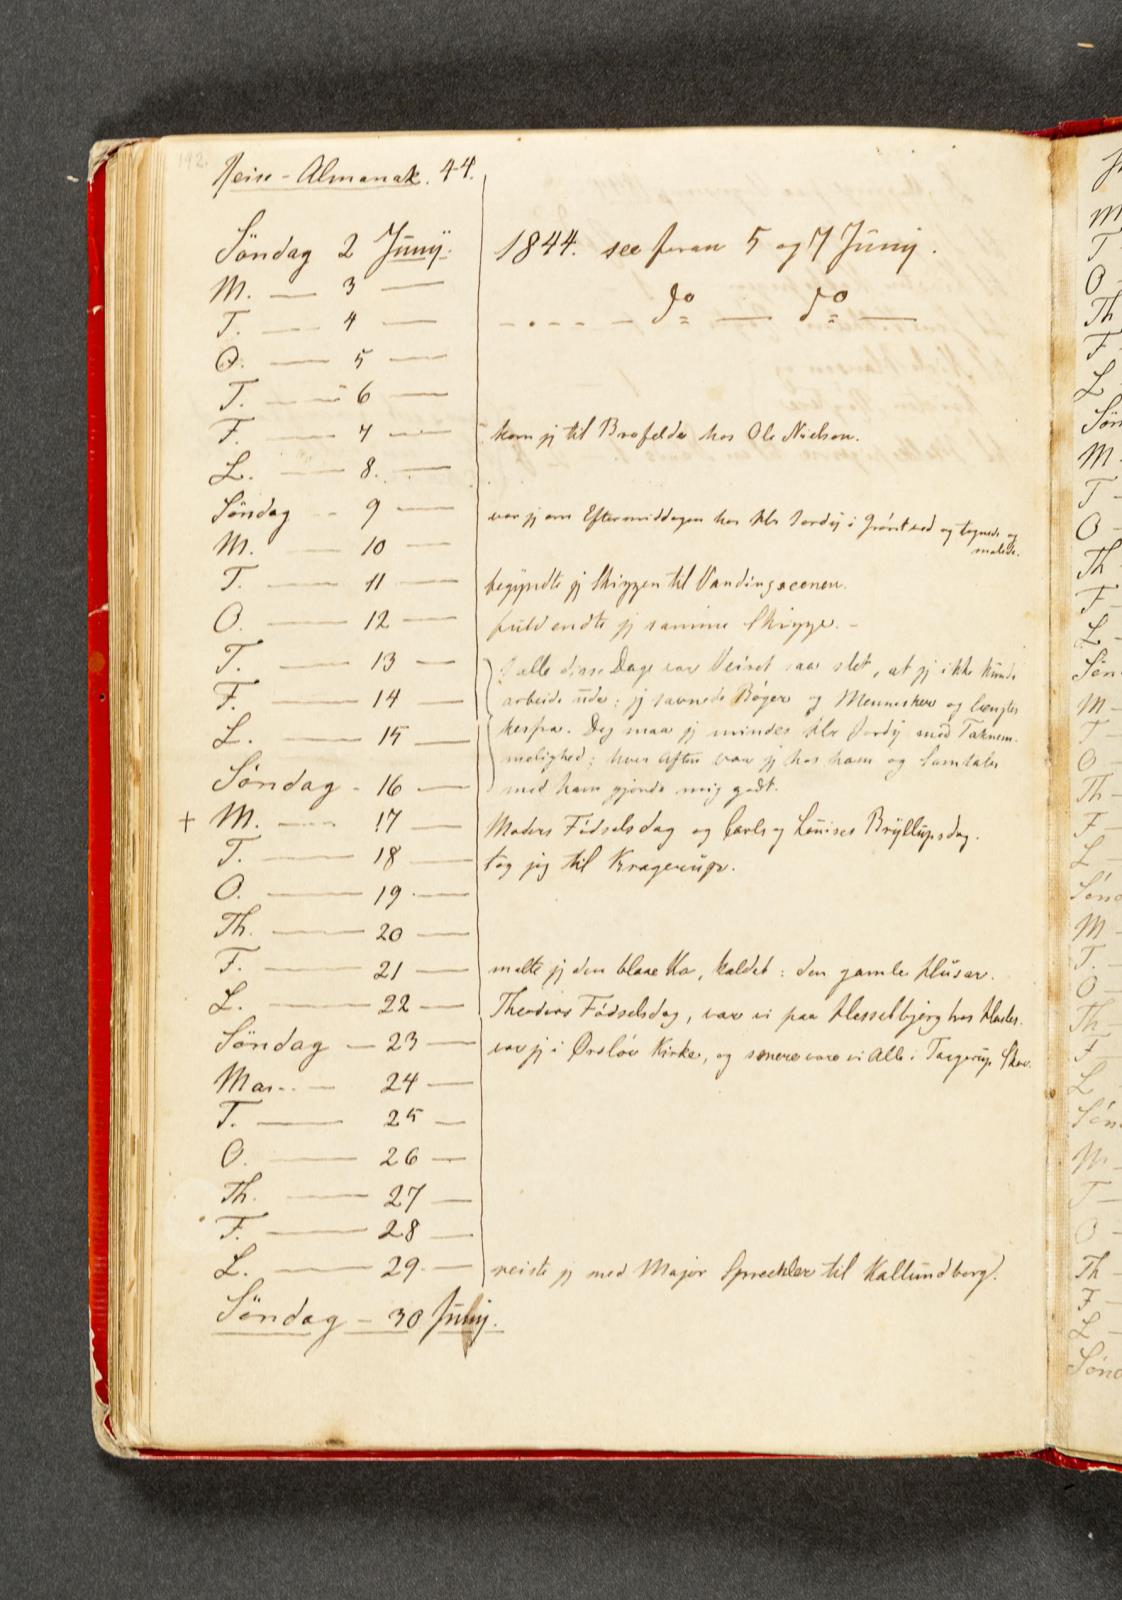 192.
Reise-Almanak. 44.
Söndag 2 Junÿ. 1844. see foran 5 og 7 Junÿ.
M. — 3 — do — do —
T. — 4 —
O. — 5 —
T. — 6 —
F. — 7 — kom jeg til Brofelde hos Ole Nielsen.
L. — 8. —
Söndag - 9 — var jeg om Eftermiddagen hos Hr Jordÿ i og tegnede og
malede.
M. — 10 —
T. — 11 — begÿndte jeg Skizzen til Vandingscenen.
O. — 12 — fuldendte jeg samme Skizze. -
T. — 13 — I alle disse Dage var Veiret saa slet, at jeg ikke kunde
F. — 14 — arbeide ude; jeg savnede Bøger og Mennesker og længtes
L. — 15 — herfra. Dog maa jeg mindes Hr Jordÿ med Taknem-
melighed; hver Aften var jeg hos ham og Samtaler
Söndag - 16 — med ham gjorde mig godt.
+ M. — 17 — Moders Födselsdag og Carls og Louises Brÿllupsdag.
T. — 18 — tog jeg til Kragerup.
O. — 19 —
Th. — 20 —
F. — 21 — malte jeg den blaae Ko, kaldet: den gamle Husar.
L. — 22 — Theodors Födselsdag, var vi paa Hesselbjerg hos
Söndag — 23 — var jeg i Ørslöv Kirke, og senere vare vi Alle i Skov.
Man. — 24 —
T. — 25 —
O. — 26 —
Th. — 27 —
F. — 28 —
L. — 29 — reiste jeg med Major til Kallundborg.
Söndag — 30 Junÿ.